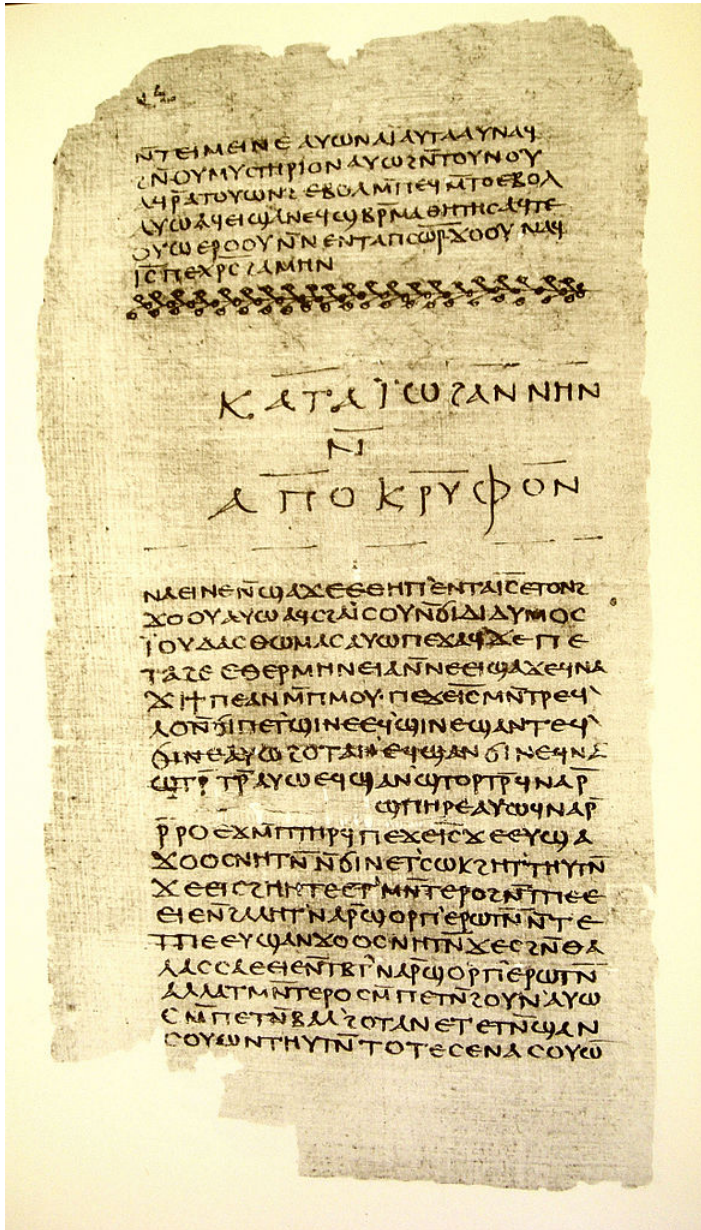 ⲛ̄ⲧⲉⲓⲙⲉⲓⲛⲉ ⲁⲩⲱ ⲛⲁⲓ ⲁⲩⲧⲁⲁⲩ ⲛⲁϥ
ϩⲛ̄ ⲟⲩⲙⲩⲥⲧⲏⲣⲓⲟⲛ ⲁⲩⲱ ϩⲛ̄ ⲧⲟⲩⲛⲟⲩ
ⲁϥⲣ̄ ⲁⲧⲟⲩⲱⲛϩ ⲉⲃⲟⲗ ⲙ̄ⲡⲉϥⲙ̄ⲧⲟ ⲉⲃⲟⲗ
ⲁⲩⲱ ⲁϥⲉⲓ ϣⲁ ⲛⲉϥϣⲃⲣ̄ⲙⲁⲑⲏⲧⲏⲥ ⲁϥⲧⲉ
ⲟⲩⲱ ⲉⲣⲟⲟⲩ ⲛ̄ⲛⲉⲛⲧⲁ ⲡⲥⲱⲣ̄ ϫⲟⲟⲩ ⲛⲁϥ
ⲓ̄ⲥ̄ ⲡⲉⲭⲣ̄ⲥ̄ ϩⲁⲙⲏⲛ
ⲕⲁⲧⲁ ⲓ̈ⲱϩⲁⲛⲛⲏⲛ
ⲛ̄
ⲁⲡⲟⲕⲣⲩⲫⲟⲛ
ⲛⲁⲉⲓ ⲛⲉ ⲛ̄ϣⲁϫⲉ ⲉⲑⲏⲡ ⲉⲛⲧⲁ ⲓ̄ⲥ̄ ⲉⲧⲟⲛϩ
ϫⲟⲟⲩ ⲁⲩⲱ ⲁϥⲥϩⲁⲓⲥⲟⲩ ⲛ̄ϭⲓ ⲇⲓⲇⲩⲙⲟⲥ
ⲓ̈ⲟⲩⲇⲁⲥ ⲑⲱⲙⲁⲥ ⲁⲩⲱ ⲡⲉϫⲁϥ ϫⲉ ⲡⲉ
ⲧⲁϩⲉ ⲉⲑⲉⲣⲙⲏⲛⲉⲓⲁ ⲛ̄ⲛⲉⲉⲓϣⲁϫⲉ ϥⲛⲁ
ϫⲓ ϯⲡⲉ ⲁⲛ ⲙ̄ⲡⲙⲟⲩ ⲡⲉϫⲉ ⲓ̄ⲥ̄ ⲙⲛ̄ⲧⲣⲉϥ
ⲗⲟ ⲛ̄ϭⲓ ⲡⲉⲧϣⲓⲛⲉ ⲉϥϣⲓⲛⲉ ϣⲁⲛⲧⲉϥ
ϭⲓⲛⲉ ⲁⲩⲱ ϩⲟⲧⲁⲛ ⲉϥϣⲁⲛϭⲓⲛⲉ ϥⲛⲁ
ϣⲧⲣ̄ⲧⲣ̄ ⲁⲩⲱ ⲉϥϣⲁⲛϣⲧⲟⲣⲧⲣ̄ ϥⲛⲁⲣ̄
ϣⲡⲏⲣⲉ ⲁⲩⲱ ϥⲛⲁⲣ̄
ⲣ̄ⲣⲟ ⲉϫⲙ̄ ⲡⲧⲏⲣϥ ⲡⲉϫⲉ ⲓ̄ⲥ̄ ϫⲉ ⲉⲩϣⲁ
ϫⲟⲟⲥ ⲛⲏⲧⲛ̄ ⲛ̄ϭⲓ ⲛⲉⲧⲥⲱⲕ ϩⲏⲧ ⲑⲏⲩⲧⲛ̄
ϫⲉ ⲉⲓⲥϩⲏⲏⲧⲉ ⲉⲧⲙⲛ̄ⲧⲉⲣⲟ ϩⲛ̄ ⲧⲡⲉ ⲉ
ⲉⲓⲉ ⲛ̄ϩⲁⲗⲏⲧ ⲛⲁⲣ̄ ϣⲟⲣⲡ ⲉⲣⲱⲧⲛ̄ ⲛ̄ⲧⲉ
ⲧⲡⲉ ⲉⲩϣⲁⲛϫⲟⲟⲥ ⲛⲏⲧⲛ̄ ϫⲉ ⲥϩⲛ̄ ⲑⲁ
ⲗⲁⲥⲥⲁ ⲉⲉⲓⲉ ⲛ̄ⲧⲃⲧ ⲛⲁⲣ̄ ϣⲟⲣⲡ ⲉⲣⲱⲧⲛ̄
ⲁⲗⲗⲁ ⲧⲙⲛ̄ⲧⲉⲣⲟ ⲥⲙ̄ⲡⲉⲧⲛ̄ϩⲟⲩⲛ ⲁⲩⲱ
ⲥⲙ̄ⲡⲉⲧⲛ̄ⲃⲁⲗ ϩⲟⲧⲁⲛ ⲉⲧⲉⲧⲛ̄ϣⲁⲛ
ⲥⲟⲩⲱⲛ ⲧⲏⲩⲧⲛ̄ ⲧⲟⲧⲉ ⲥⲉⲛⲁⲥⲟⲩⲱ